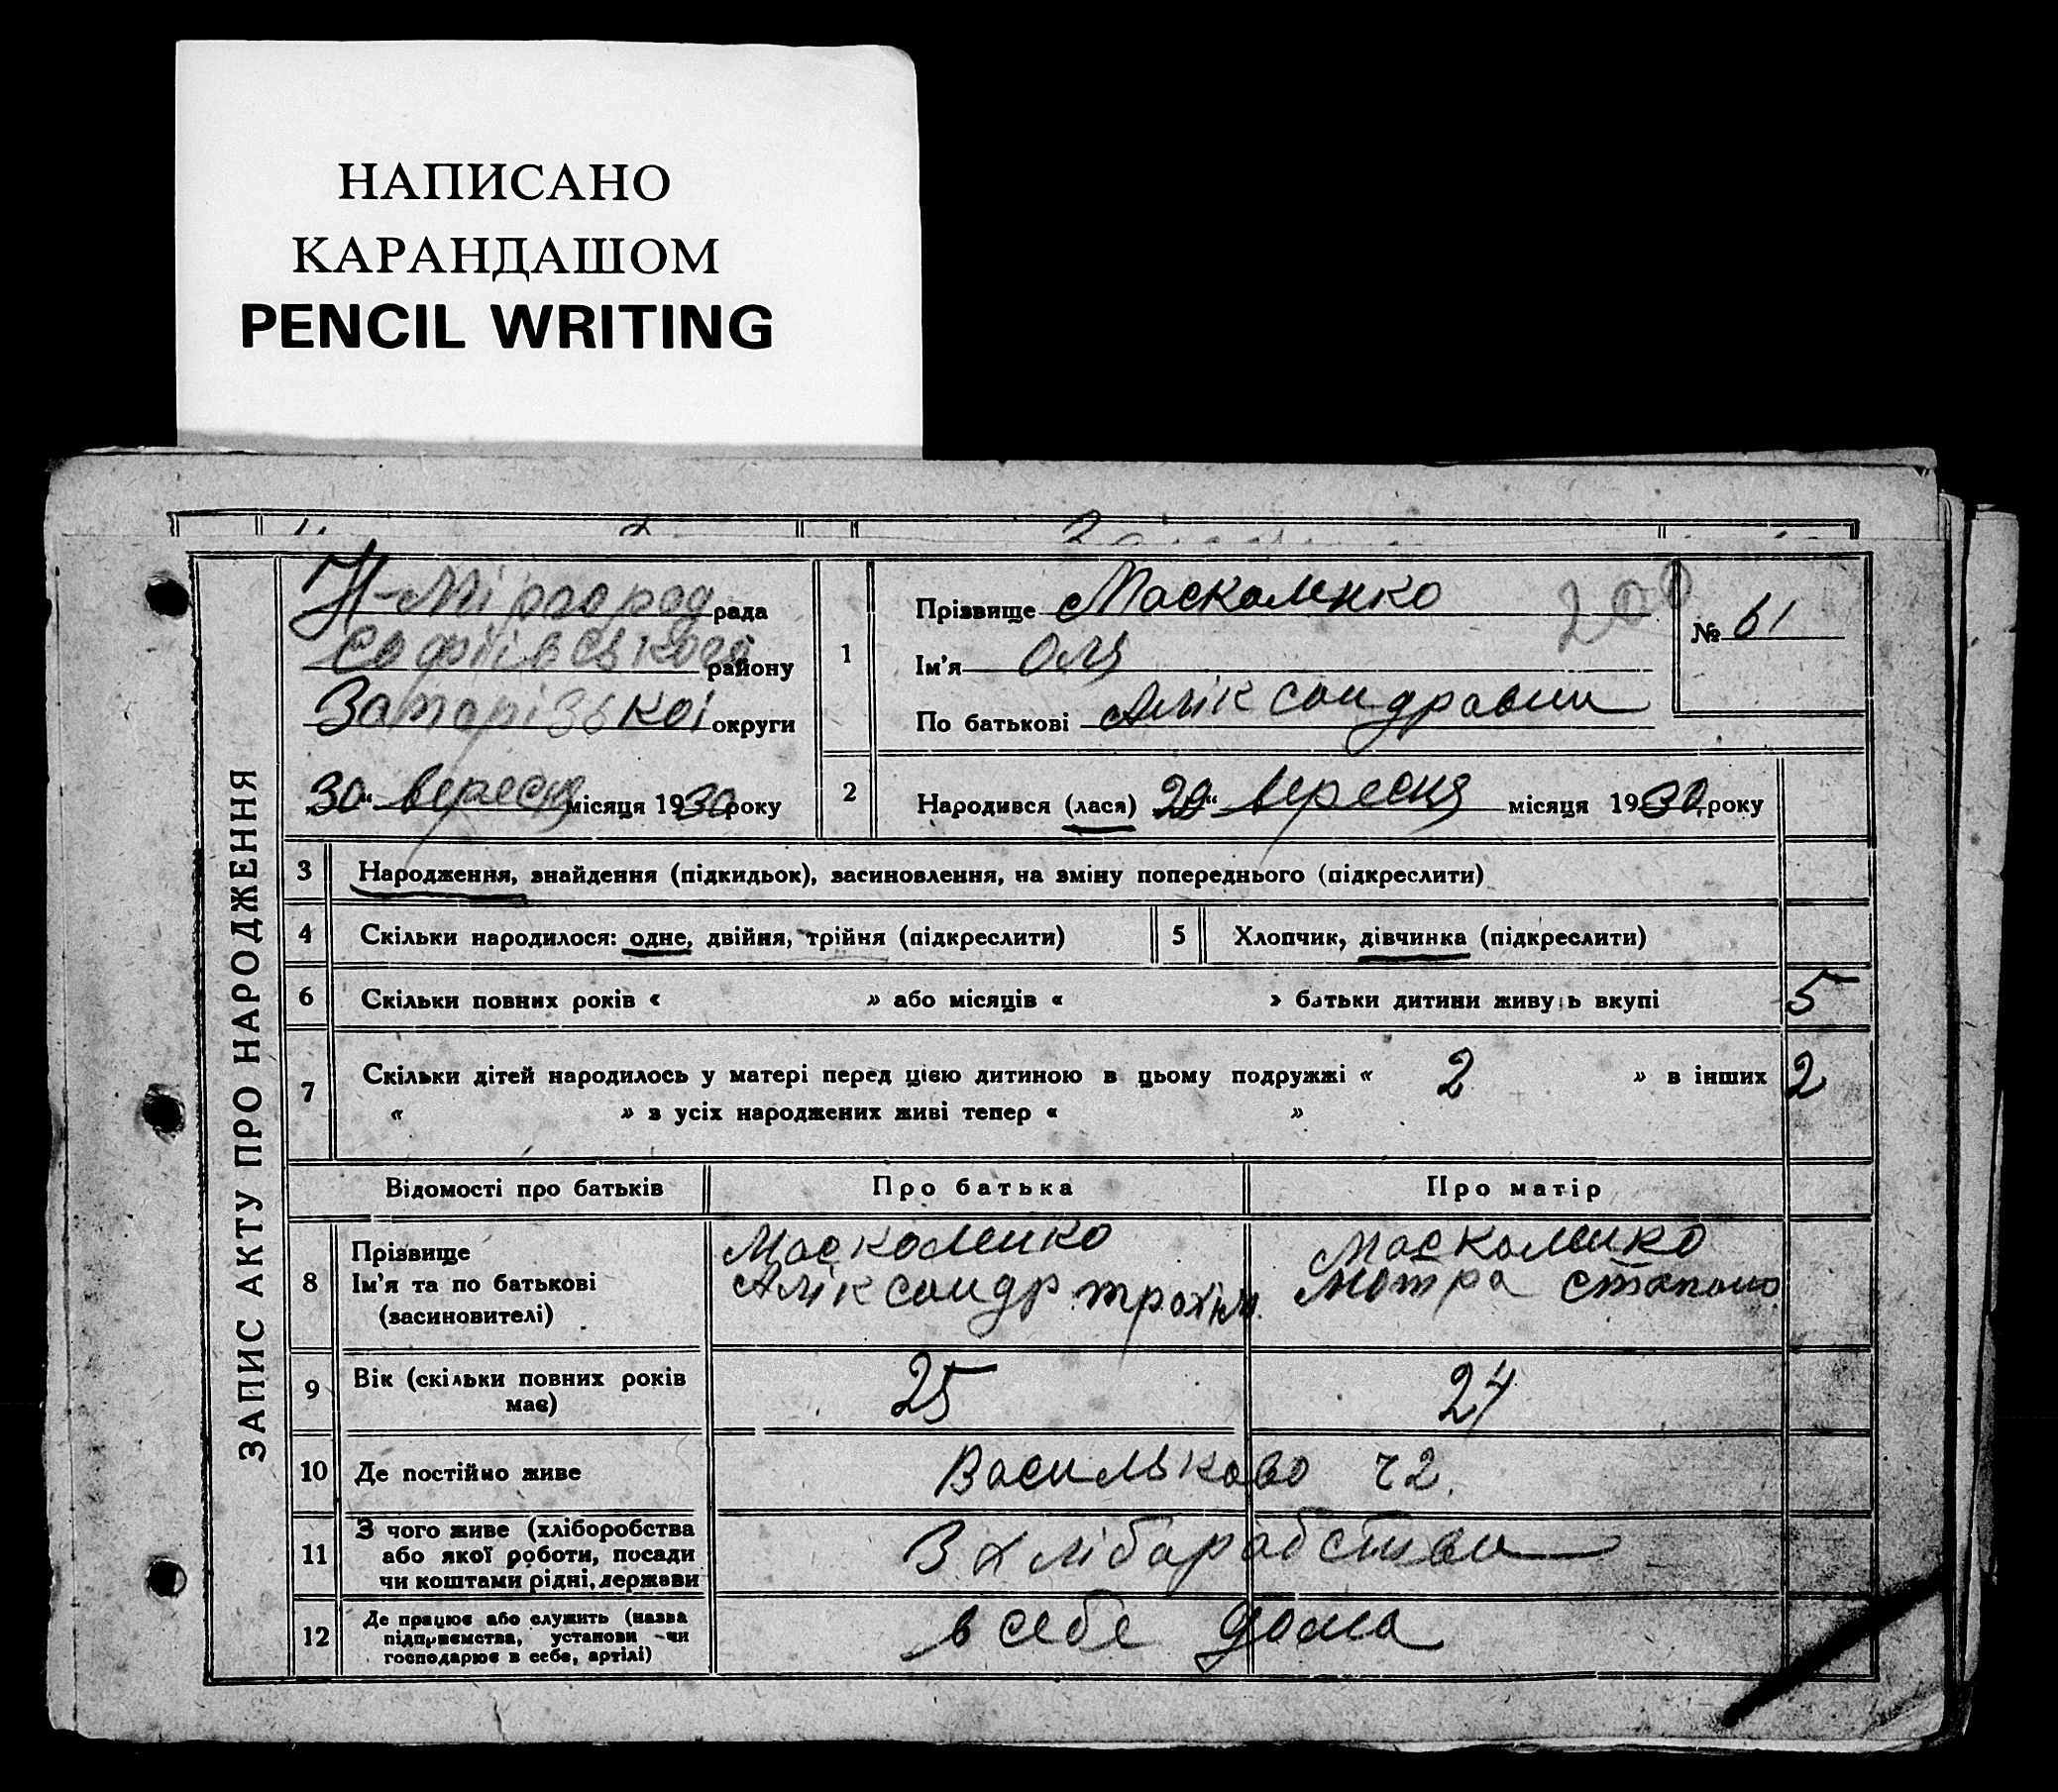 НАПИСАНО
КАРАНДАШОМ
PENCIL WRITING
ЗАПИС АКТУ ПРО НАРОДЖЕННЯ
Н-Міргород рада
Софіївського району
Запорізької округи
30 " вересня місяця 1930 року
1
Прізвище Москаленко
Ім'я Оля
По батькові Аліксандравни
200
№ 61
2
Народився (лася) 29 " вересня місяця 1930 року
3 Народження, знайдення (підкидьок), засиновлення, на зміну попереднього (підкреслити)
4 Скільки народилося: одне, двійня, трійня (підкреслити) 5 Хлопчик, дівчинка (підкреслити)
6 Скільки повних років « » або місяців « » батьки дитини живуть вкупі 5
7 Скільки дітей народилось у матері перед цією дитиною в цьому подружжі « 2 » в інших 2
« » з усіх народжених живі тепер « »
Відомості про батьків Про батька Про матір
8 Прізвище
Ім'я та по батькові
(засиновителі)
Москаленко
Аліксандр трохим.
Москаленко
Мотра
9 Вік (скільки повних років
має)
25 24
10 Де постійно живе Васильково ч2.
11 З чого живе (хліборобства
або якої роботи, посади
чи коштами рідні, держави
З хлібарабства
12 Де працює або служить (назва
підприємства, установи -чи
господарює в себе, артілі)
в себе дома